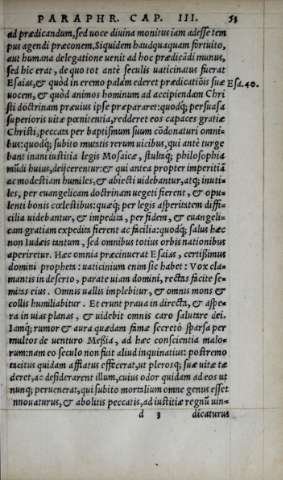 PARAPHR. CAP. III. 53
ad prædicandum, sed uoce diuina monitus iam adesse tem
pus agendi præconem, Siquidem haudquaquam fortuito,
aut humana delegatione uenit ad hoc prædicãdi munus,
sed hic erat, de quo tot ante seculis uaticinatus fuerat
Esaias, & quòd in eremo palàm ederet prædicatiõis suæ Esa. 40.
uocem, & quòd animos hominum ad accipiendam Chri
sti doctrinam præuius ipse præpararet: quodq; persuasa
superioris uitæ pœnitentia, redderet eos capaces gratiæ
Christi, peccata per baptismum suum cõdonaturi omni-
bus: quodq; subito mutatis rerum uicibus, qui antè turge
bant inani iustitia legis Mosaicæ, stultaq; philosophia
mũdi huius, deijcerentur: & qui antea propter imperitiã
ac modestiam humiles, & abiecti uidebantur, atq; inuti-
les, per euangelicam doctrinam uegeti fierent, & opu-
lenti bonis cœlestibus: quæq; per legis asperitatem diffi-
cilia uidebantur, & impedita, per fidem, & euangeli-
cam gratiam expedita fierent ac facilia: quodq; salus hæc
non Iudæis tantum, sed omnibus totius orbis nationibus
aperiretur. Hæc omnia præcinuerat Esaias, certissimus
domini propheta: uaticinium enim sic habet: Vox cla-
mantis in deserto, parate uiam domini, rectas facite se-
mitas eius. Omnis uallis implebitur, & omnis mons &
collis humiliabitur. Et erunt praua in directa, & aspe-
ra in uias planas, & uidebit omnis caro salutare dei.
Iamq; rumor & aura quædam famæ secretò sparsa per
multos de uenturo Meßia, ad hæc conscientia malo-
rum: nam eo seculo non fuit aliud inquinatius: postremo
tacitus quidam afflatus effecerat, ut plerosq; suæ uitæ tæ
deret, ac desiderarent illum, cuius odor quidam ad eos ut
cunq; peruenerat, qui subito mortalium omne genus esset
innouaturus, & abolitis peccatis, ad iustitiæ regnũ uin-
d 3 dicaturus